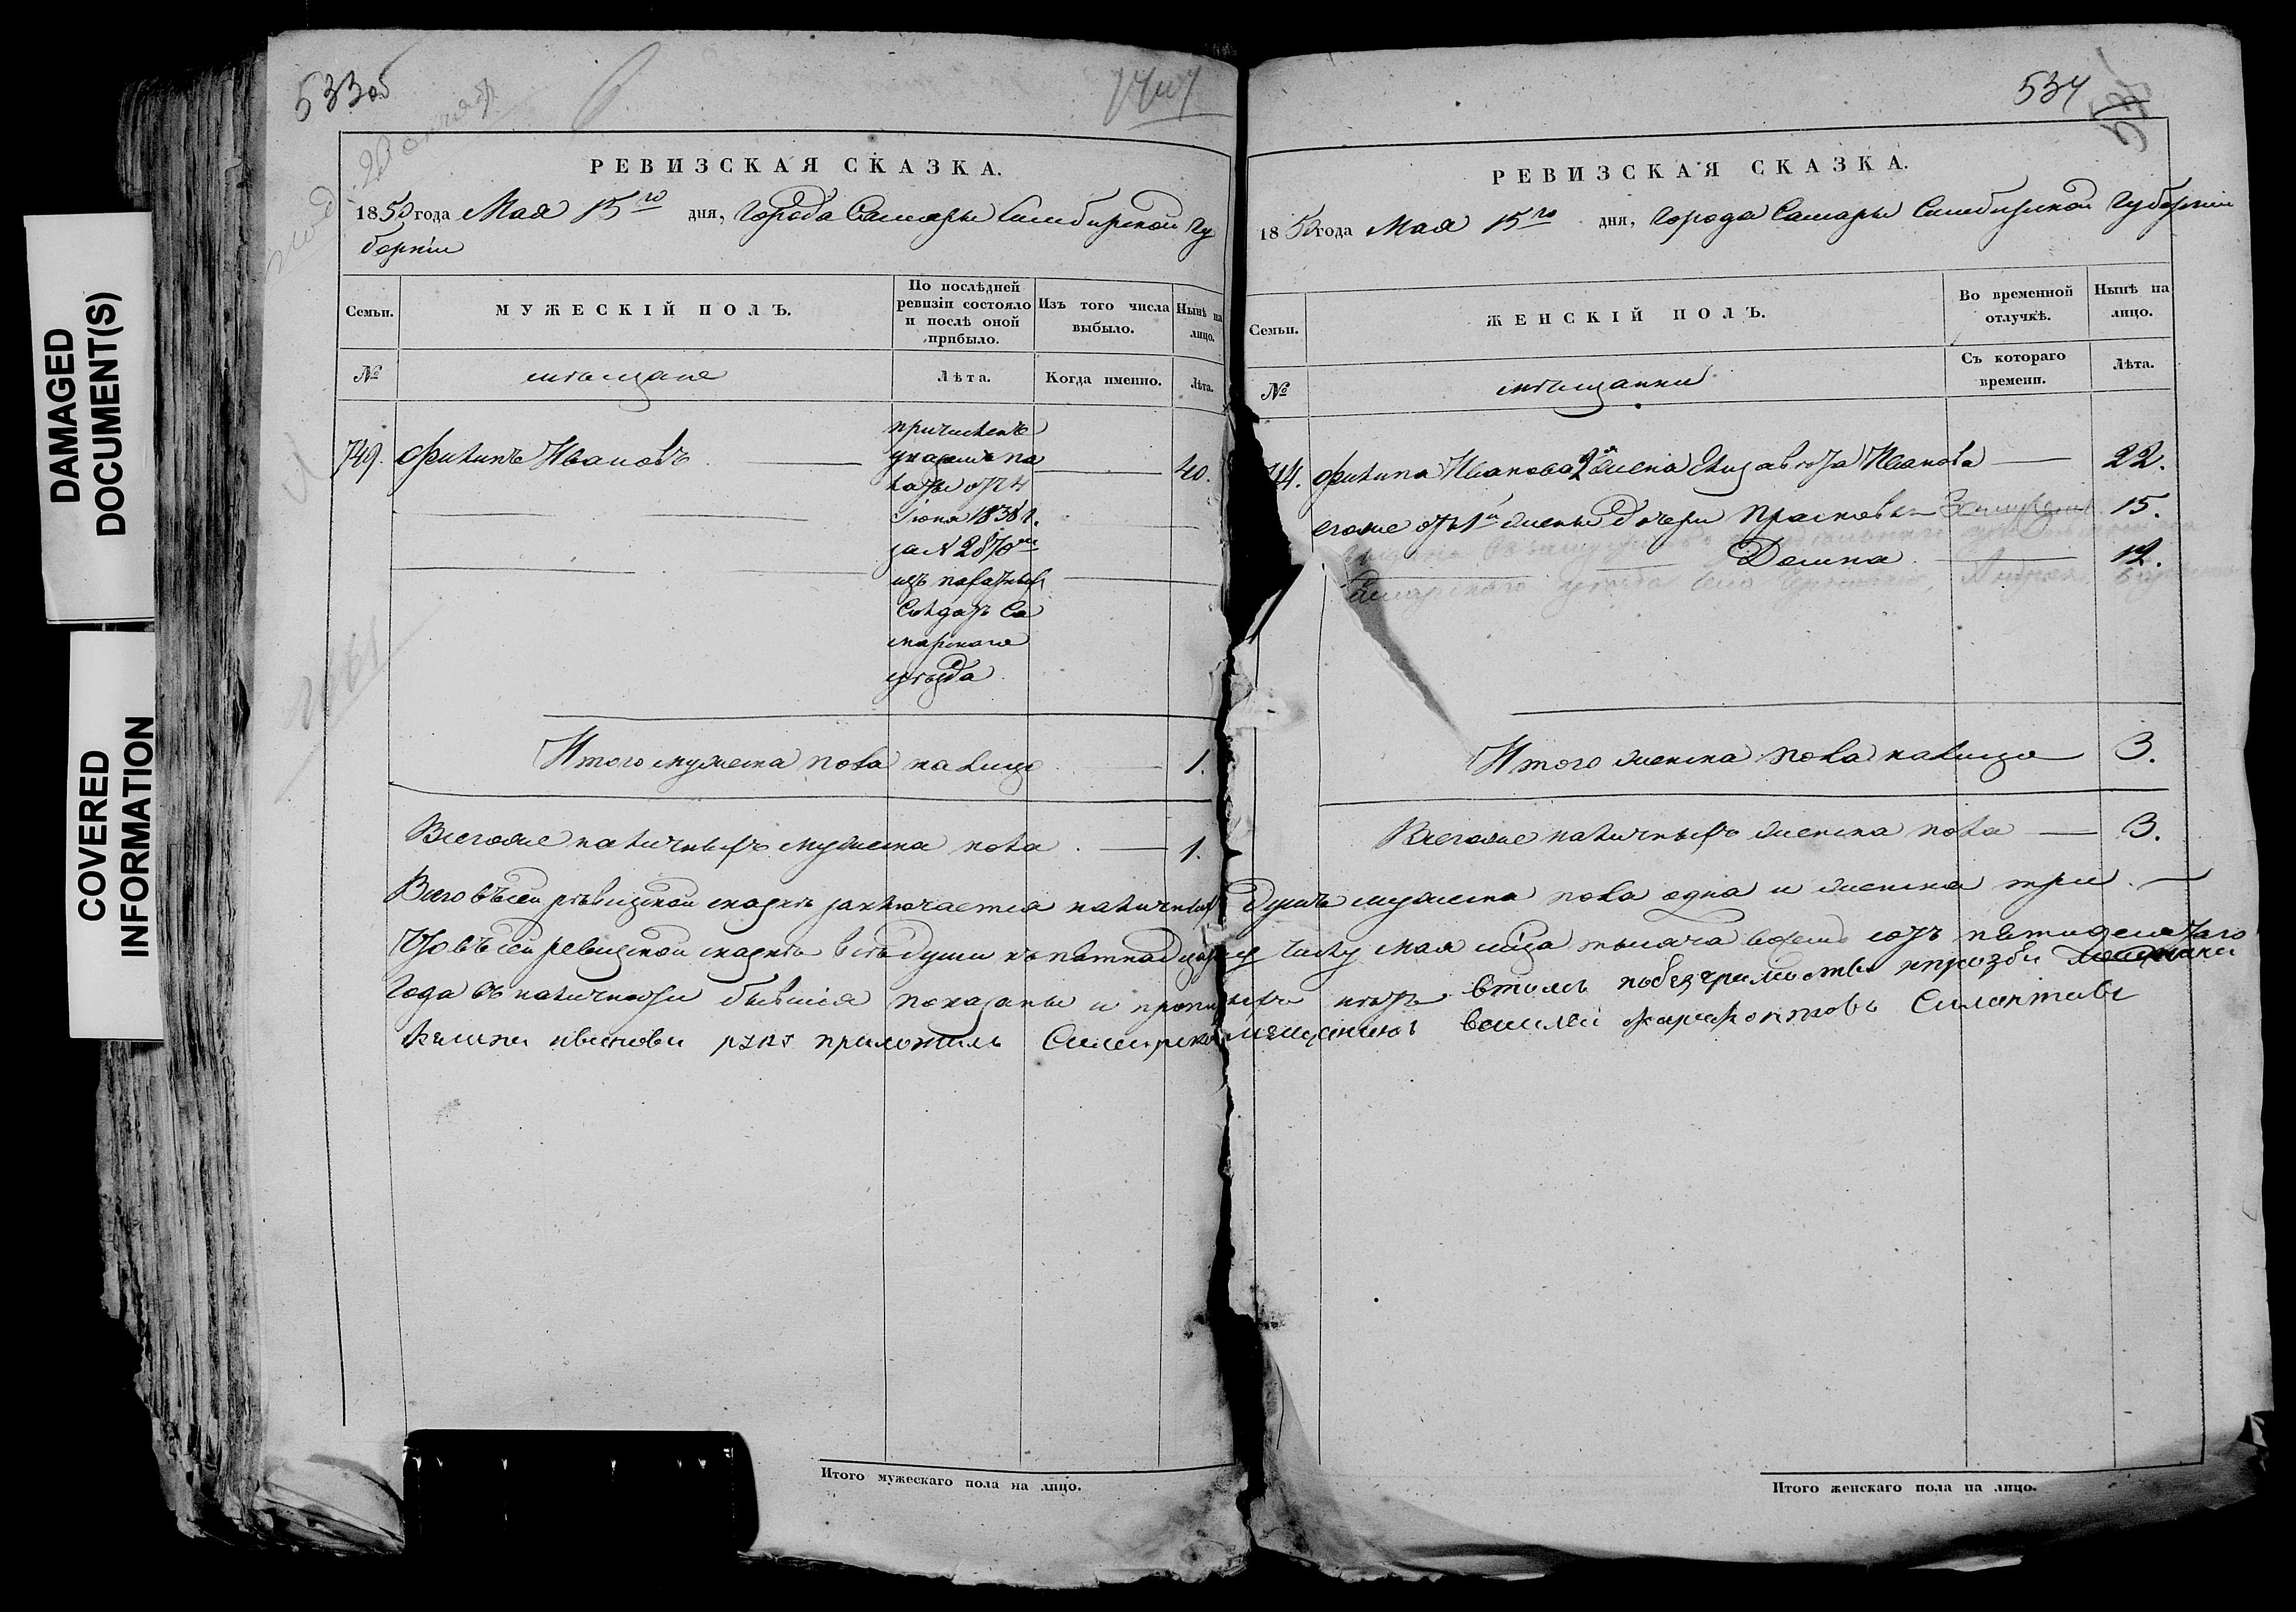 DAMAGED
DOCUMENT(S)
COVERED
INFORMATION
533об
РЕВИЗСКАЯ СКАЗКА.
1850 года Мая 15го дня, Города Самары Симбирской Гу
берніи
Семьи.
МУЖЕСКІЙ ПОЛЪ.
По послѣдней
ревизіи состояло
и послѣ оной
прибыло.
Изъ того числа
выбыло.
Нынѣ на
лицо.
№
мѣщане
Лѣта.
Когда именно.
Лѣта.
причисленъ
749. Филипъ Ивановъ указомъ па 40.
латы отъ 24
Іюня 1838 г.
за № 2870
изъ пахатныхъ
Солдатъ Са
марскаго
уѣзда
Итого мужеска пола налицо 1.
Всегоже наличныхъ мужеска пола 1.
Итого мужескаго пола на лицо.
534
РЕВИЗСКАЯ СКАЗКА.
1850 года Мая 15го дня, Города Самары Симбирской Губерніи
Семьи.
ЖЕНСКІЙ ПОЛЪ.
Во временной
отлучкѣ.
Нынѣ на
лицо.
№
мѣщанки
Съ котораго
времени.
Лѣта.
Филипа Иванова 2я жена Елизавета Иванова 22.
егоже отъ 1й жены дочери Прасковья 15.
Домна 12.
Итого женска пола налицо 3.
Всегоже наличныхъ женска пола 3.
Всего въ сей ревизской сказкѣ заключается наличныхъ душъ мужеска пола одна и женска три.
Что въ сей ревизской сказкѣ всѣ души къ пятнадцатому числу мая мца тысяча восемь сотъ пятидесятаго
Года въ наличности бывшія показаны и прописныхъ нѣтъ втомъ побезграмотству ипрозби
Филипа иванова руку приложилъ Самарской мещанинъ василей
Итого женскаго пола на лицо.